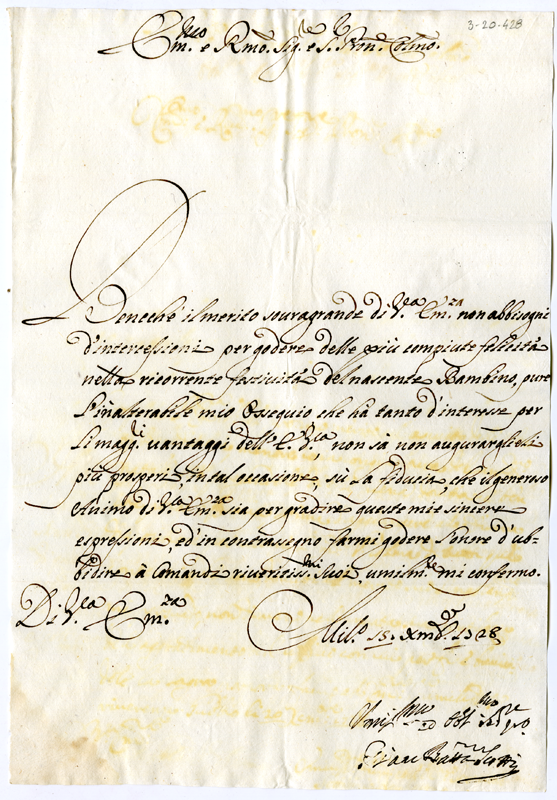 3-20-428
Em.mo e Rmo. Sig.re e P.ron Colmo.
Beneche il merito souragrande di V.ra Em.za non abbisogni
d'intercessioni per godere delle più compiute felicità
nella ricorrente festiuità del nascente Bambino, pure
l'inalterabile mio Ossequio che hà tanto d'interesse per
li magg.ri uantaggi dell'E. V.ra, non sà non augurarglieli
più prosperi in tal occasione, sù la fiducia, che il generoso
Animo di V.ra Em.za sia per gradire queste mie sincere
espressioni, ed in contrassegno farmi godere l'onore d'ub-
bidire à Comandi riueritiss.mi suoi, umilm.te mi confermo.
Di V.ra Em.za
Mil.o 15. Xmb.re 1728
Umiliss.mo ed Obl.mo
Batta Scotti